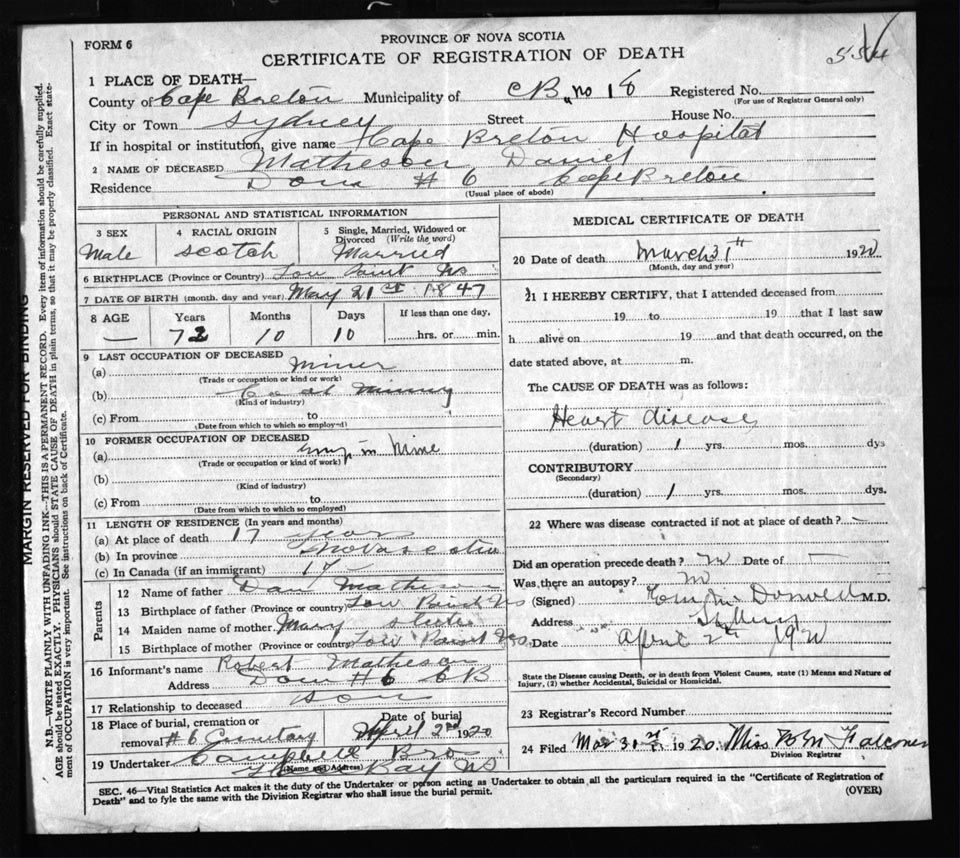 FORM 6
PROVINCE OF NOVA SCOTIA
CERTIFICATE OF REGISTRATION OF DEATH
554
1 PLACE OF DEATH—
County of Cape Breton Municipality of CB No 18 Registered No.
(For use of Registrar General only)
City or Town Sydney Street House No.
If in hospital or institution, give name Cape Breton Hospital
2 NAME OF DECEASED Matheson Daniel
Residence Dom #6 Cape Breton
(Usual place of abode)
PERSONAL AND STATISTICAL INFORMATION
3 SEX
Male
4 RACIAL ORIGIN
Scotch
5 Single, Married, Widowed or Divorced (Write the word)
Married
6 BIRTHPLACE (Province or Country) Low Point NS
7 DATE OF BIRTH (month, day and year) May 21st 1847
8 AGE Years Months Days If less than one day,
— 72 10 10 hrs. or min.
9 LAST OCCUPATION OF DECEASED
(a) Miner
(Trade or occupation or kind or work)
(b) Coal Mining
(Kind of industry)
(c) From to
(Date from which to which so employed)
10 FORMER OCCUPATION OF DECEASED
(a) in Mine
(Trade or occupation or kind of work)
(b)
(Kind of industry)
(c) From to
(Date from which to which so employed)
11 LENGTH OF RESIDENCE (In years and months)
(a) At place of death 17 years
(b) In province Nova Scotia
(c) In Canada (if an immigrant) 17 —
Parents
12 Name of father Dan Matheson
13 Birthplace of father (Province or country) Low Point NS
14 Maiden name of mother Mary
15 Birthplace of mother (Province or country) Low Point NS.
16 Informant's name Robert Matheson
Address Dom #6 CB
17 Relationship to deceased Son
18 Place of burial, cremation or removal #6 Cemetary Date of burial April 2nd 1920
19 Undertaker Campbell Bro
(Name and Address) Bay NS
MEDICAL CERTIFICATE OF DEATH
20 Date of death March 31th 1920
(Month, day and year)
21 I HEREBY CERTIFY, that I attended deceased from
19 to 19 that I last saw
h alive on 19 and that death occurred, on the
date stated above, at m.
The CAUSE OF DEATH was as follows:
Heart disease
(duration) 1 yrs. mos. dys
CONTRIBUTORY
(Secondary)
(duration) 1 yrs. mos. dys.
22 Where was disease contracted if not at place of death? —
Did an operation precede death? No Date of
Was there an autopsy? No
(Signed) M.D.
Address Sydney
Date April 2th 1920
State the Disease causing Death, or in death from Violent Causes, state (1) Means and Nature of
Injury, (2) whether Accidental, Suicidal or Homicidal.
23 Registrar's Record Number
24 Filed Mar 31st 1920. Miss Falconer
Division Registrar
SEC. 46—Vital Statistics Act makes it the duty of the Undertaker or person acting as Undertaker to obtain all the particulars required in the "Certificate of Registration of
Death" and to fyle the same with the Division Registrar who shall issue the burial permit. (OVER)
MARGIN RESERVED FOR BINDING
N.B.—WRITE PLAINLY WITH UNFADING INK—THIS IS A PERMANENT RECORD. Every item of information should be carefully supplied.
AGE should be stated EXACTLY. PHYSICIANS should STATE CAUSE OF DEATH in plain terms, so that it may be properly classified. Exact state-
ment of OCCUPATION is very important. See instructions on back of Certificate.